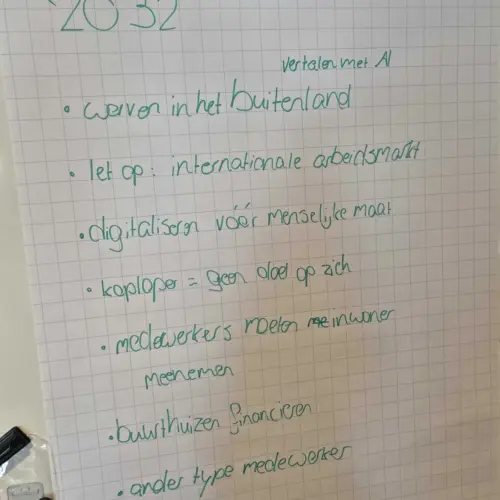 2032
vertalen met AI
• werven in het buitenland
• let op: internationale arbeidsmarkt
• digitaliseren vóór menselijke maat
• koploper = geen doel op zich
• medewerkers moeten inwoner
meenemen
• buurthuizen financieren
• ander type medewerker